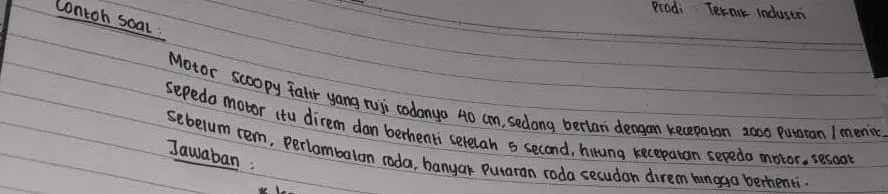 Prodi : Teknik Industri
Contoh Soal :
Motor scoopy fatir yang ruji rodanya 40 cm, sedang berlari dengan kecepatan 2000 Putaran / menit.
sepeda motor itu direm dan berhenti setelah 5 second, hitung kecepatan sepeda motor. sesaat
sebelum rem, Perlambatan roda, banyak Putaran roda secudah direm hingga berhenti.
Jawaban :